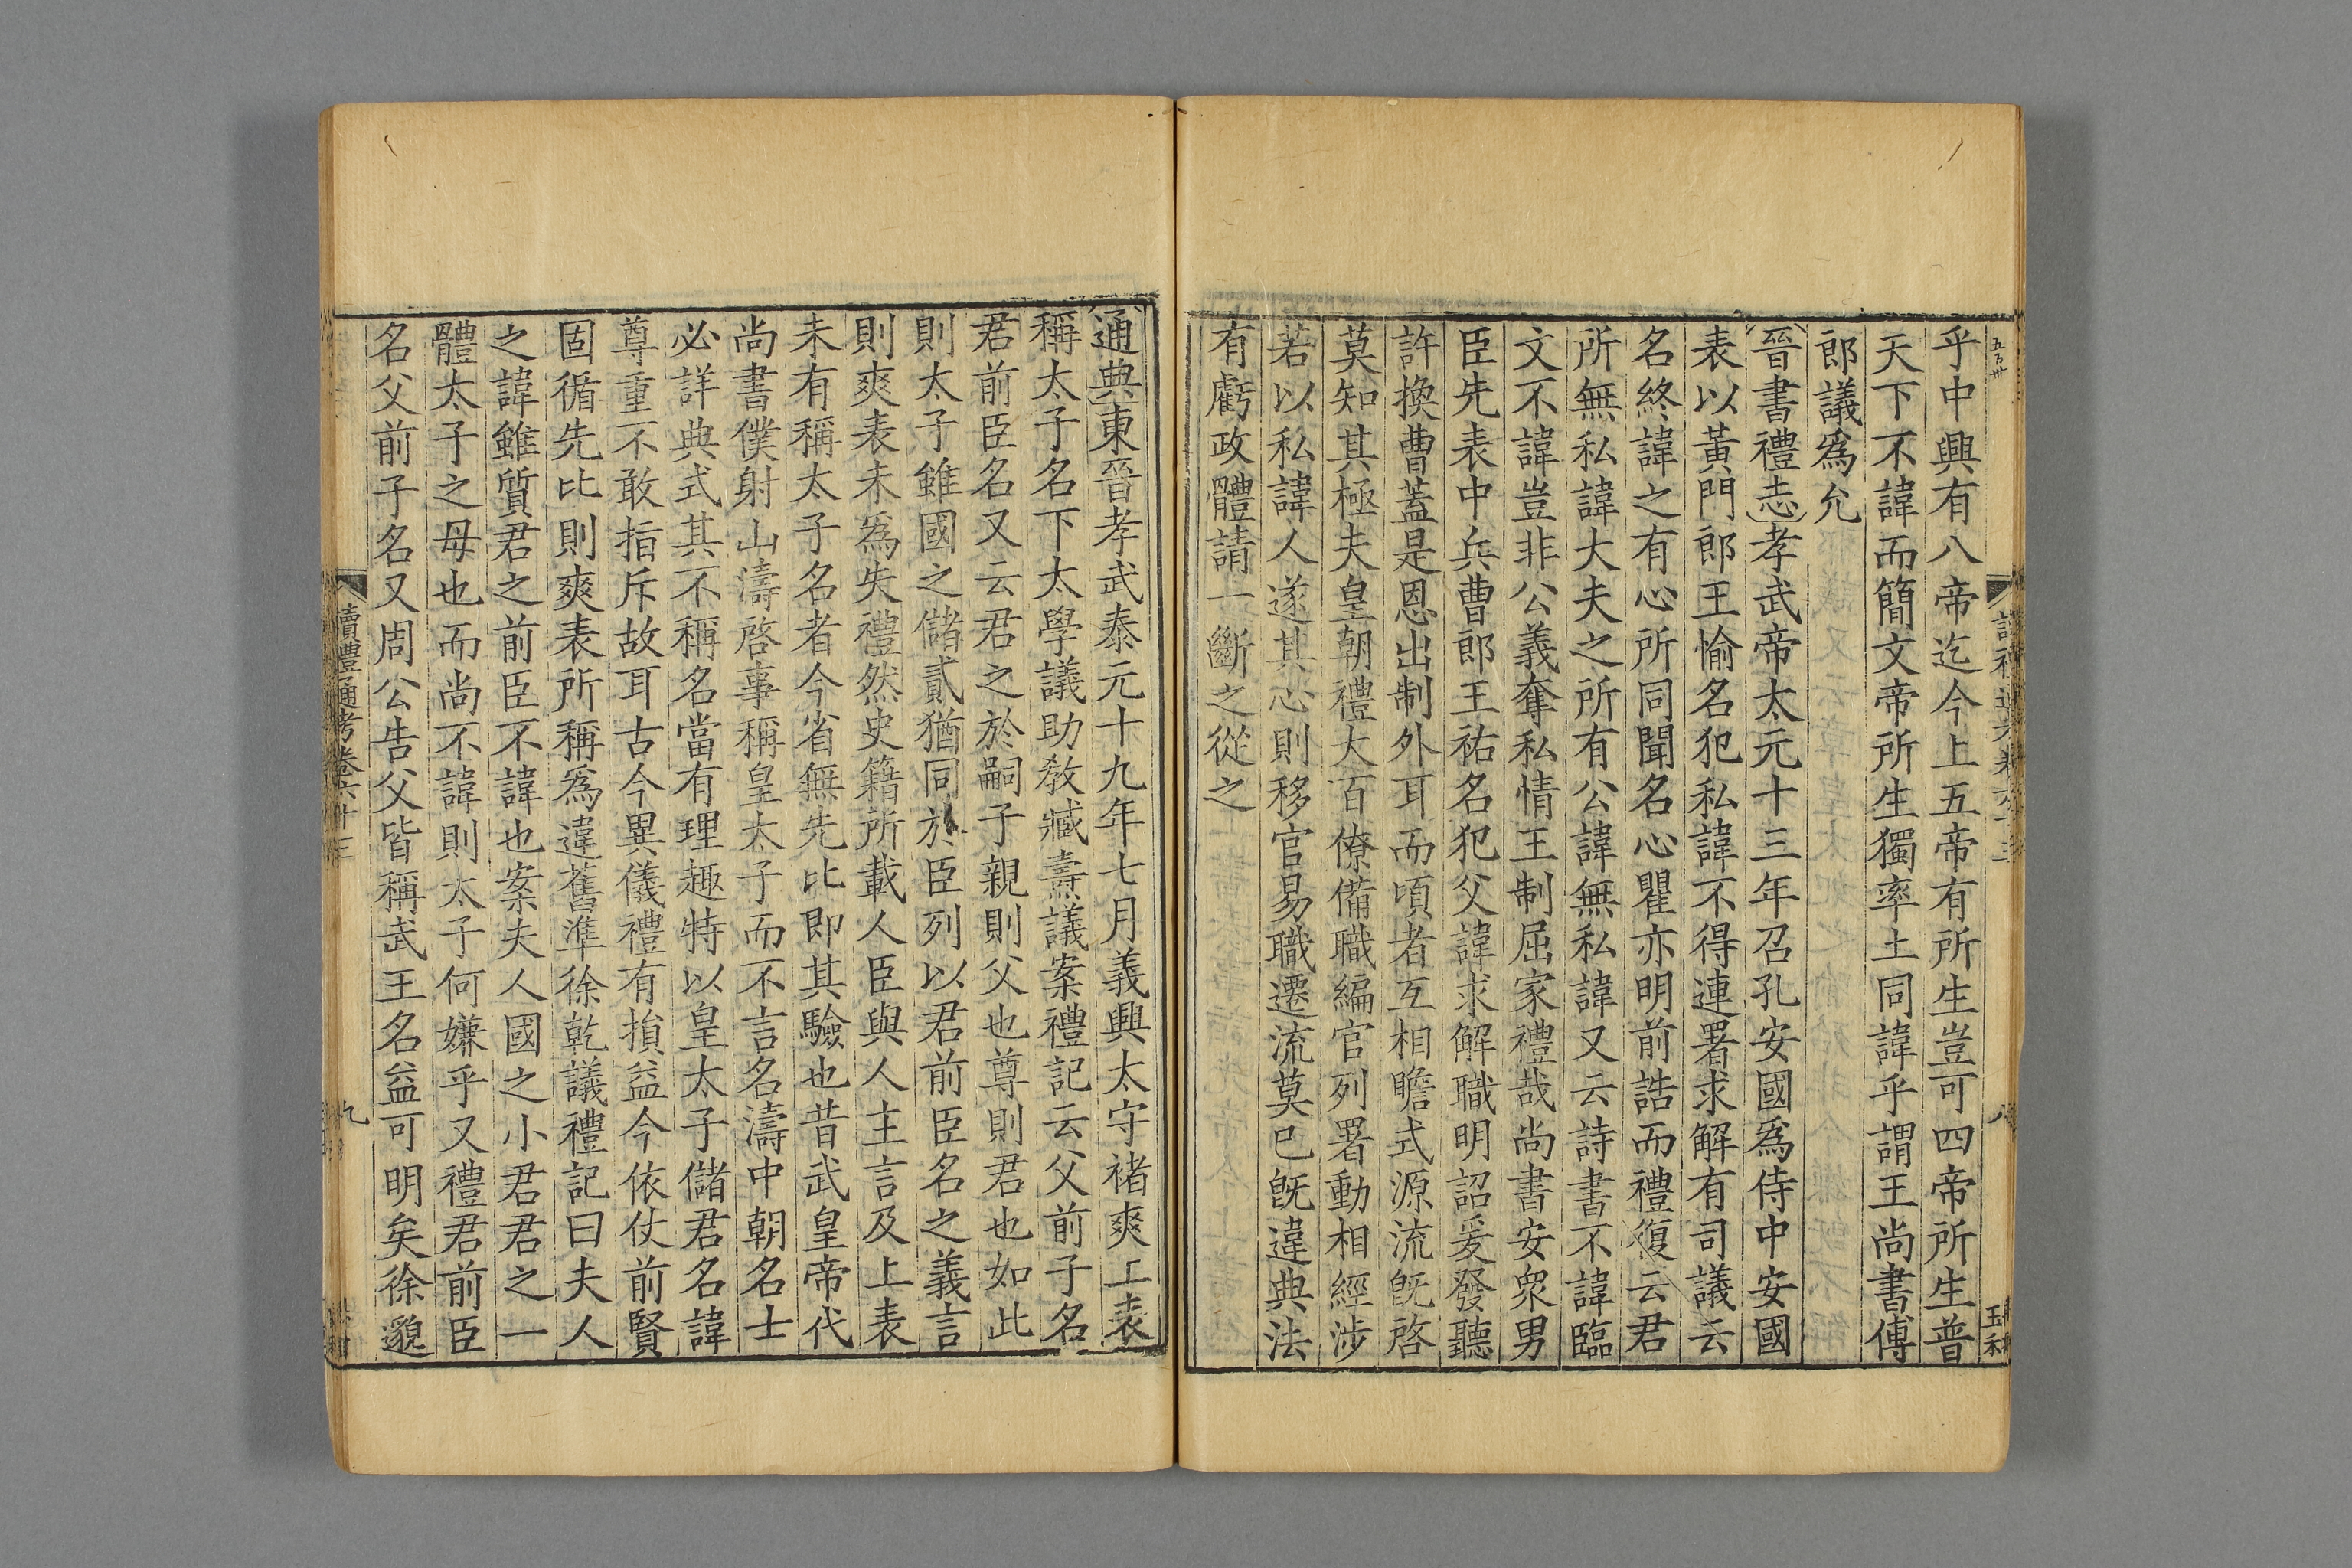 乎中興有八帝迄今上五帝有所生豈可四帝所生普
天下不諱而簡文帝所生獨率土同諱乎謂王尚書傅
郎議爲允
晉書禮志孝武帝太元十三年召孔安國爲侍中安國
表以黃門郎王愉名犯私諱不得連署求解有司議云
名終諱之有心所同聞名心瞿亦明前誥而禮復云君
所無私諱大夫之所有公諱無私諱又云詩書不諱臨
文不諱豈非公義奪私情王制屈家禮哉尚書安衆男
臣先表中兵曹郎王祐名犯父諱求解職明詔爰發聽
許換曹蓋是恩出制外耳而頃者互相瞻式源流旣啓
莫知其極夫皇朝禮大百僚備職編官列署動相經涉
若以私諱人遂其心則移官易職遷流莫已旣違典法
有虧政體請一斷之從之
通典東晉孝武泰元十九年七月義興太守褚爽上表
稱太子名下太學議助教臧燾議案禮記云父前子名
君前臣名又云君之於嗣子親則父也尊則君也如此
則太子雖國之儲貳猶同於臣列以君前臣名之義言
則爽表未爲失禮然史籍所載人臣與人主言及上表
未有稱太子名者今省無先比即其驗也昔武皇帝代
尚書僕射山濤啓事稱皇太子而不言名濤中朝名士
必詳典式其不稱名當有理趣特以皇太子儲君名諱
尊重不敢指斥故耳古今異儀禮有損益今依仗前賢
固循先比則爽表所稱爲違舊準徐乾議禮記曰夫人
之諱雖質君之前臣不諱也案夫人國之小君君之一
體太子之母也而尚不諱則太子何嫌乎又禮君前臣
名父前子名又周公告父皆稱武王名益可明矣徐邈
讀禮通考卷六十三
九